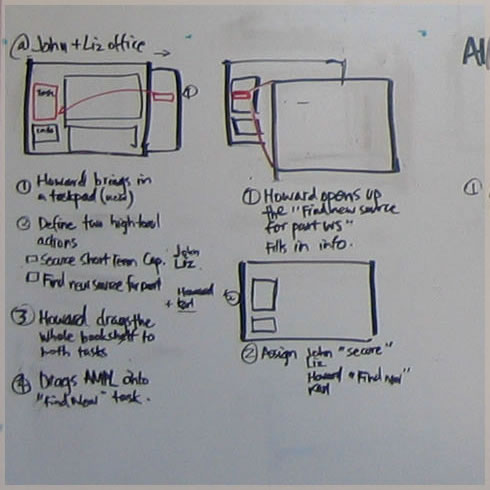 @ John + Liz office →
Task
①
① Howard brings in
a taskpad (new)
② Define two high level
actions
□ Secure Short Term Cap. John
Liz
□ Find new source for part
Howard
+ Karl
③ Howard drags the
whole bookshelf to
both tasks
④ Drags AMPL onto
"Find New" task.
① Howard opens up
the "Find new source
for part WS"
Fills in info.
② Assign John "secure"
Liz
Howard "Find New"
Karl
①